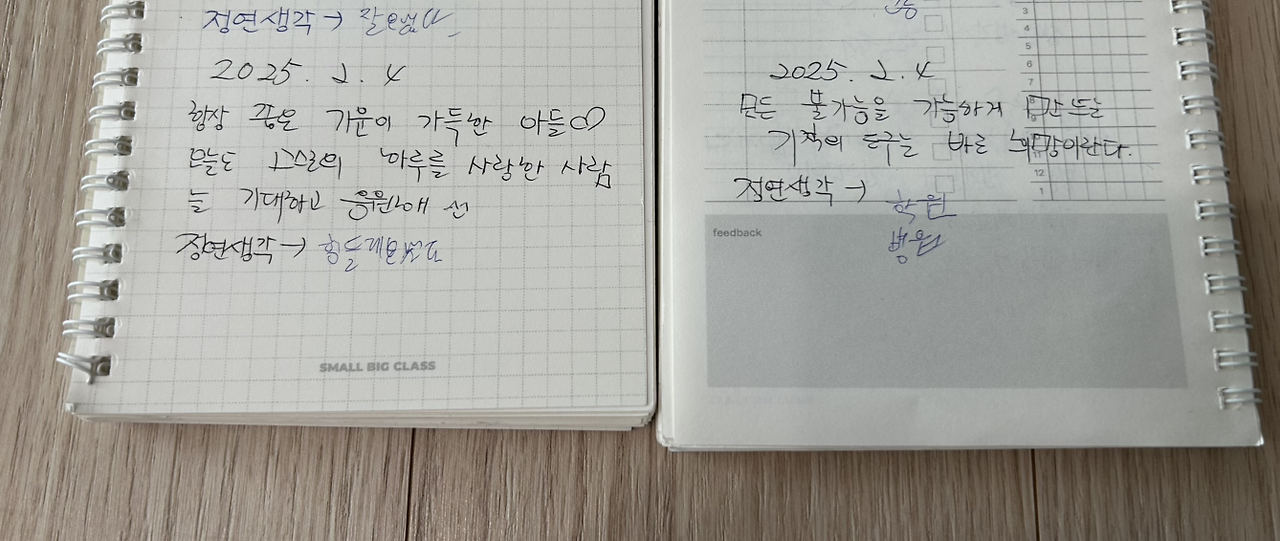 정연생각 → 잘
2025. 2. 4
항상 좋은 기운이 가득한 아들
오늘도 스스로의 하루를 사랑한 사람
늘 기대하고 응원해
정연생각 →
SMALL BIG CLASS
3
4
5
6
7
2025. 2. 4
모든 불가능을 가능하게 만드는
기적의 도구는 바로 희망이란다.
12
1
정연생각 →
학원
병원
feedback